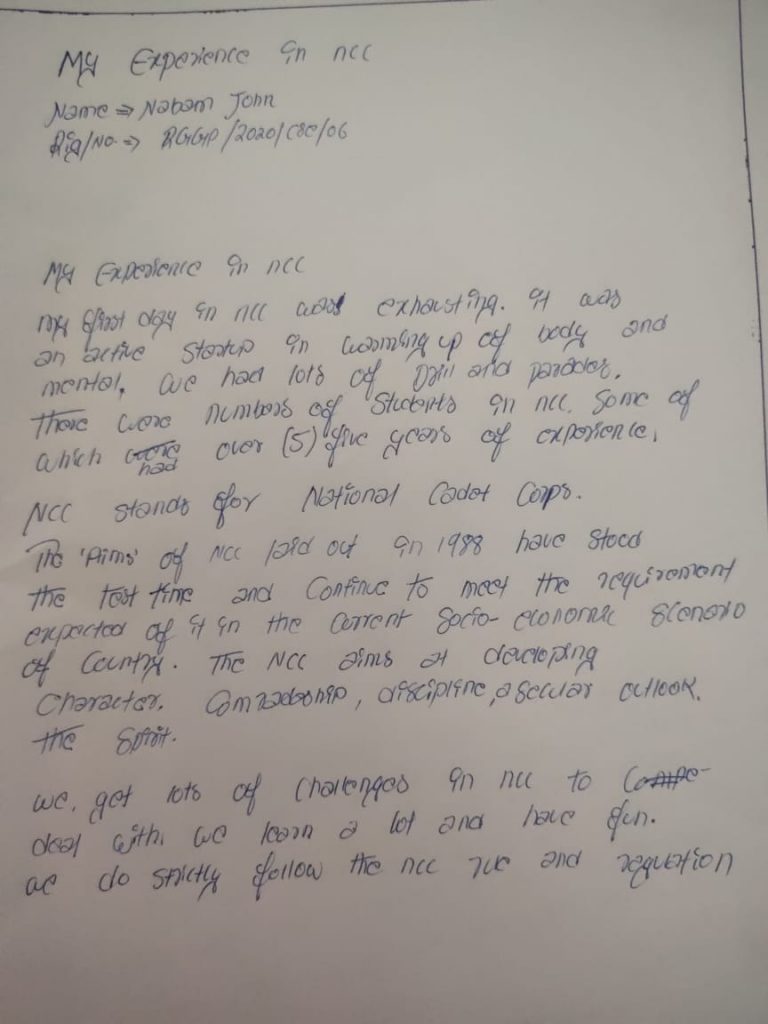 My Experience in ncc
Name ⇒ Nabam John
Rig/No. ⇒ RGGP/2020/CSE/06
My Experience in ncc
my first day in ncc was exhausting. it was
an active startup in warming up of body and
mental, we had lots of Drill and parades.
There were numbers of Students in ncc. Some of
which had over (5) five years of experience.
NCC stands for National Cadet Corps.
The 'Aims' of NCC laid out in 1988 have stood
the test time and Continue to meet the requirement
expected of it in the current Socio-economic scenero
of Country. The NCC aims at developing
Character. Comradeship, discipline, a secular outlook.
the spirit.
we, get lots of challenges in ncc to
deal with. we learn a lot and have fun.
we do strictly follow the ncc rue and reguation